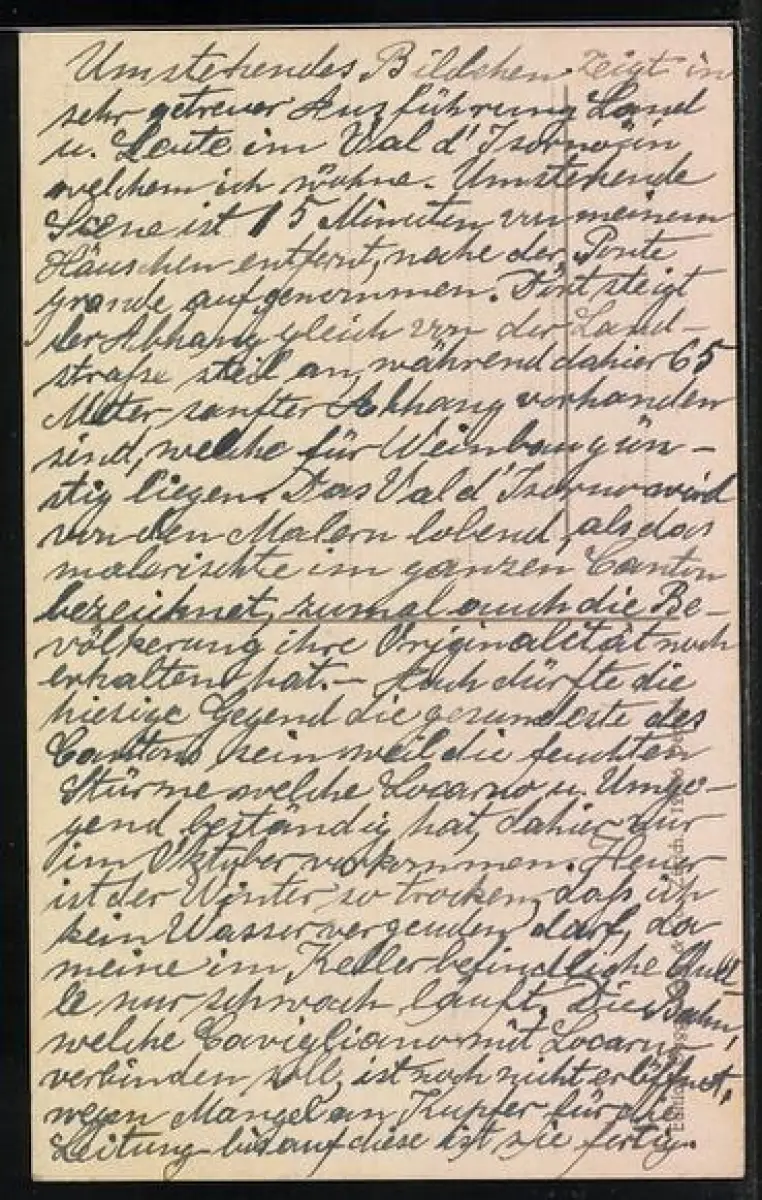 Umstehendes Bildchen zeigt in
sehr getreuer Ausführung Land
u. Leute im Val d'Isorno, in
welchem ich wohne. Umstehende
Scene ist 15 Minuten von meinem
Häuschen entfernt, nahe der Ponte
grande aufgenommen. Dort steigt
der Abhang gleich von der Land-
straße steil an, während dahier 65
Meter sanfter Abhang vorhanden
sind, welche für Weinbau gün-
stig liegen. Das Val d'Isorno wird
von den Malern lobend, als das
malerischte im ganzen Canton
bezeichnet, zumal auch die Be-
völkerung ihre Originalität noch
erhalten hat. - Auch dürfte die
hiesige Gegend die gesundeste des
Cantons sein weil die feuchten
Stürme welche Locarno u. Umge-
gend beständig hat, dahier nur
im Oktober vorkommen. Heuer
ist der Winter so trocken, daß ich
kein Wasser vergeuden darf, da
meine im Keller befindliche Quel-
le nur schwach läuft. Die Bahn,
welche Cavigliano mit Locarno
verbinden soll, ist noch nicht eröffnet,
wegen Mangel an Kupfer für die
Leitung bis auf diese ist sie fertig.